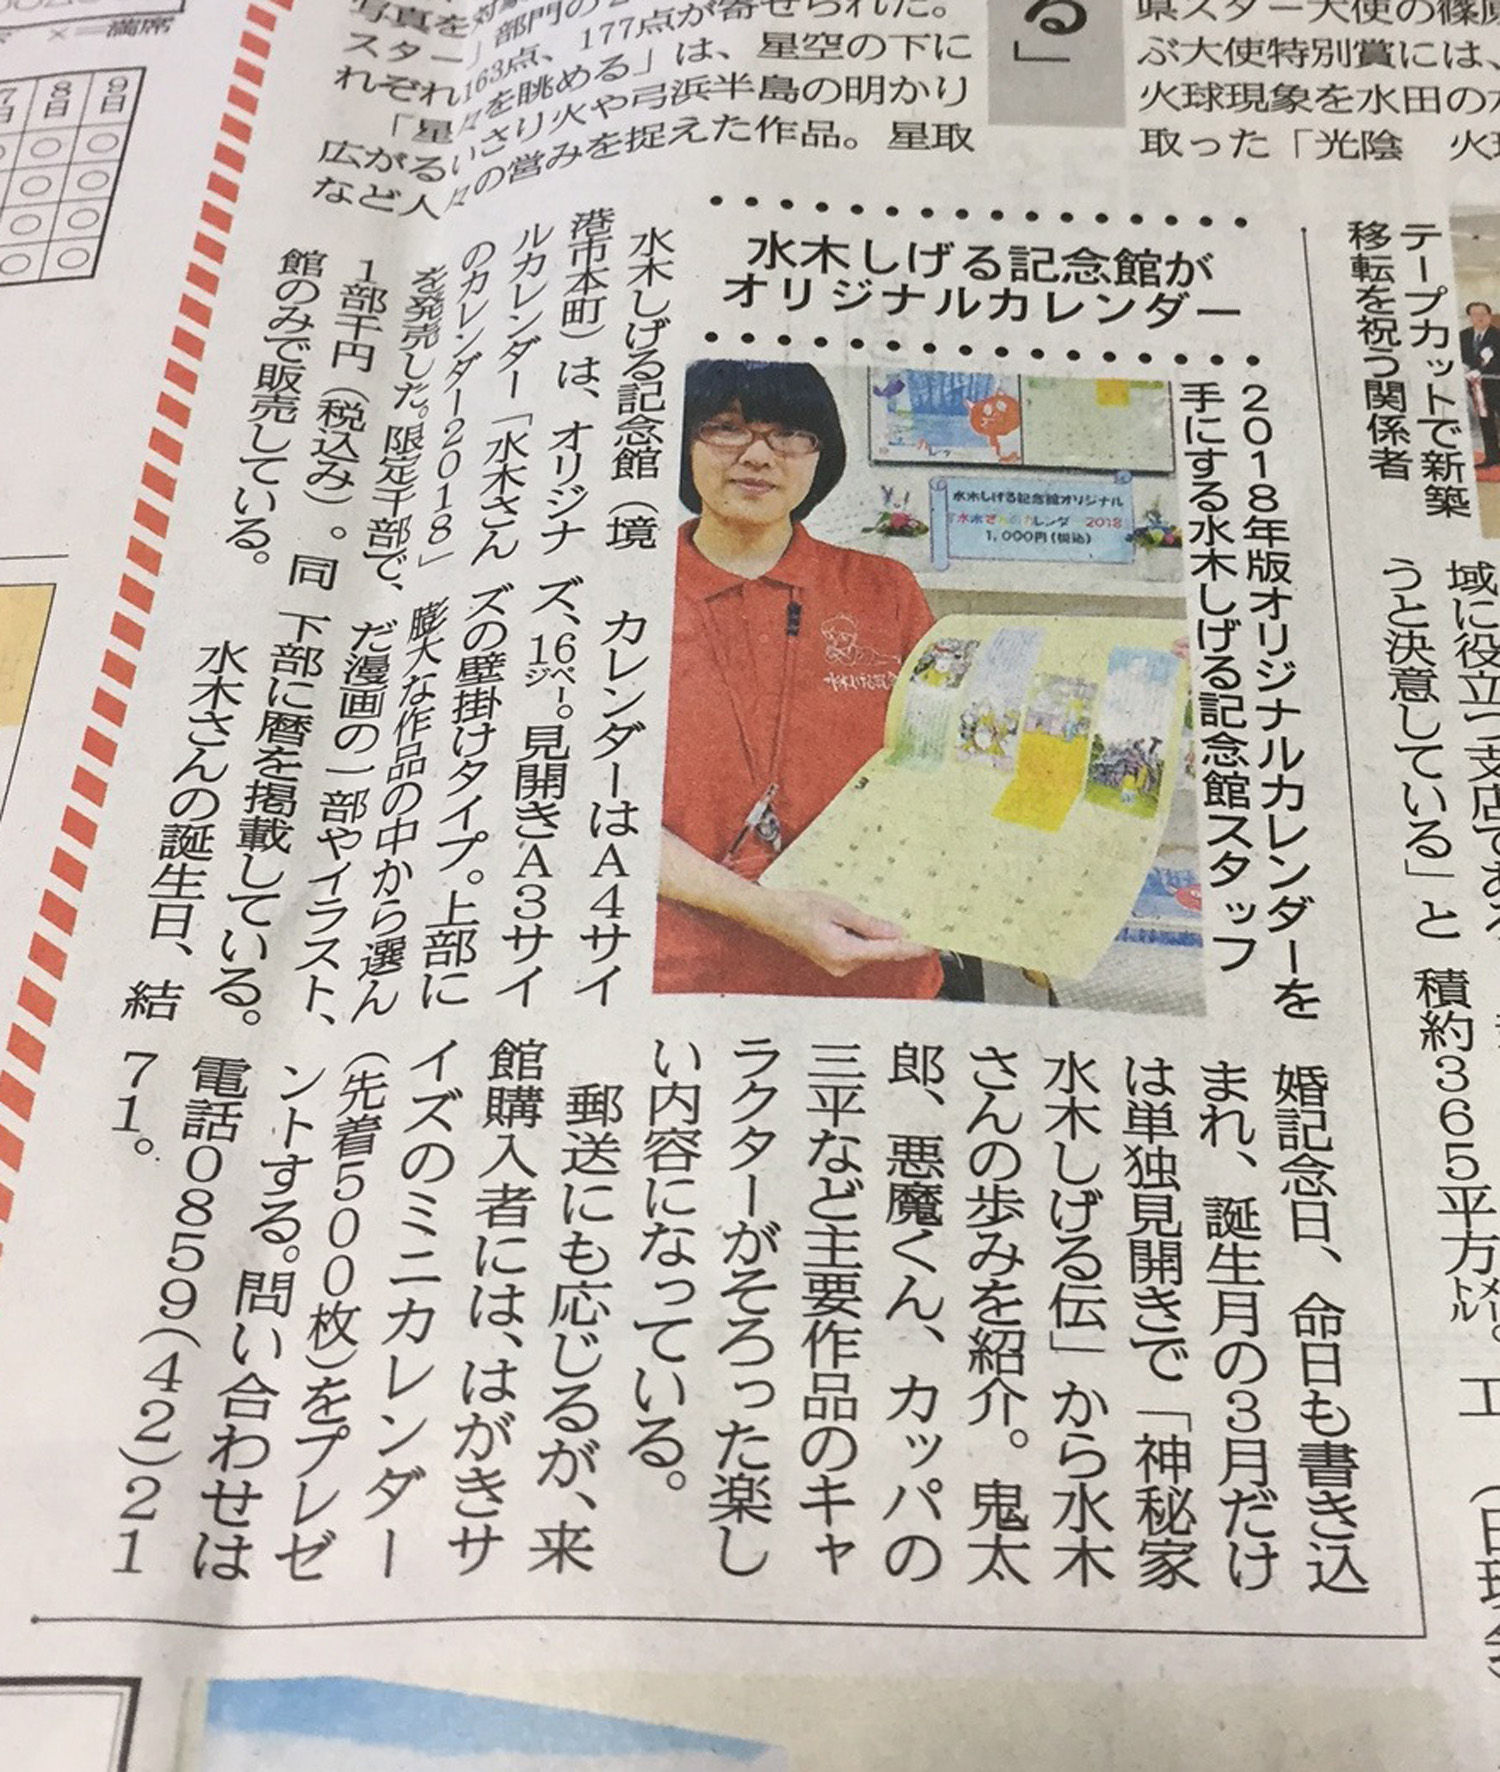 163点、177点が寄せられた。
を眺める」は、星空の下に
いさり火や弓浜半島の明かり
の営みを捉えた作品。星取
広がる
など人々
×＝満席
8日
9日
る」
県スター大使の篠原
ぶ大使特別賞には、
火球現象を水田の水
取った「光陰　火球
テープカットで新築
移転を祝う関係者
うと決意している」と
積約365平方メートル。
水木しげる記念館が
オリジナルカレンダー
2018年版オリジナルカレンダーを
手にする水木しげる記念館スタッフ
水木しげる記念館オリジナル
水木さんのカレンダー 2018
1,000円(税込)
3
水木しげる記念館（境
港市本町）は、オリジナ
ルカレンダー「水木さん
のカレンダー2018」
を発売した。限定千部で、
1部千円（税込み）。同
館のみで販売している。
カレンダーはＡ４サイ
ズ、16ページ。見開きＡ３サイ
ズの壁掛けタイプ。上部に
膨大な作品の中から選ん
だ漫画の一部やイラスト、
下部に暦を掲載している。
水木さんの誕生日、結
婚記念日、命日も書き込
まれ、誕生月の3月だけ
は単独見開きで「神秘家
水木しげる伝」から水木
さんの歩みを紹介。鬼太
郎、悪魔くん、カッパの
三平など主要作品のキャ
ラクターがそろった楽し
い内容になっている。
郵送にも応じるが、来
館購入者には、はがきサ
イズのミニカレンダー
（先着500枚）をプレゼ
ントする。問い合わせは
電話0859（42）21
71。